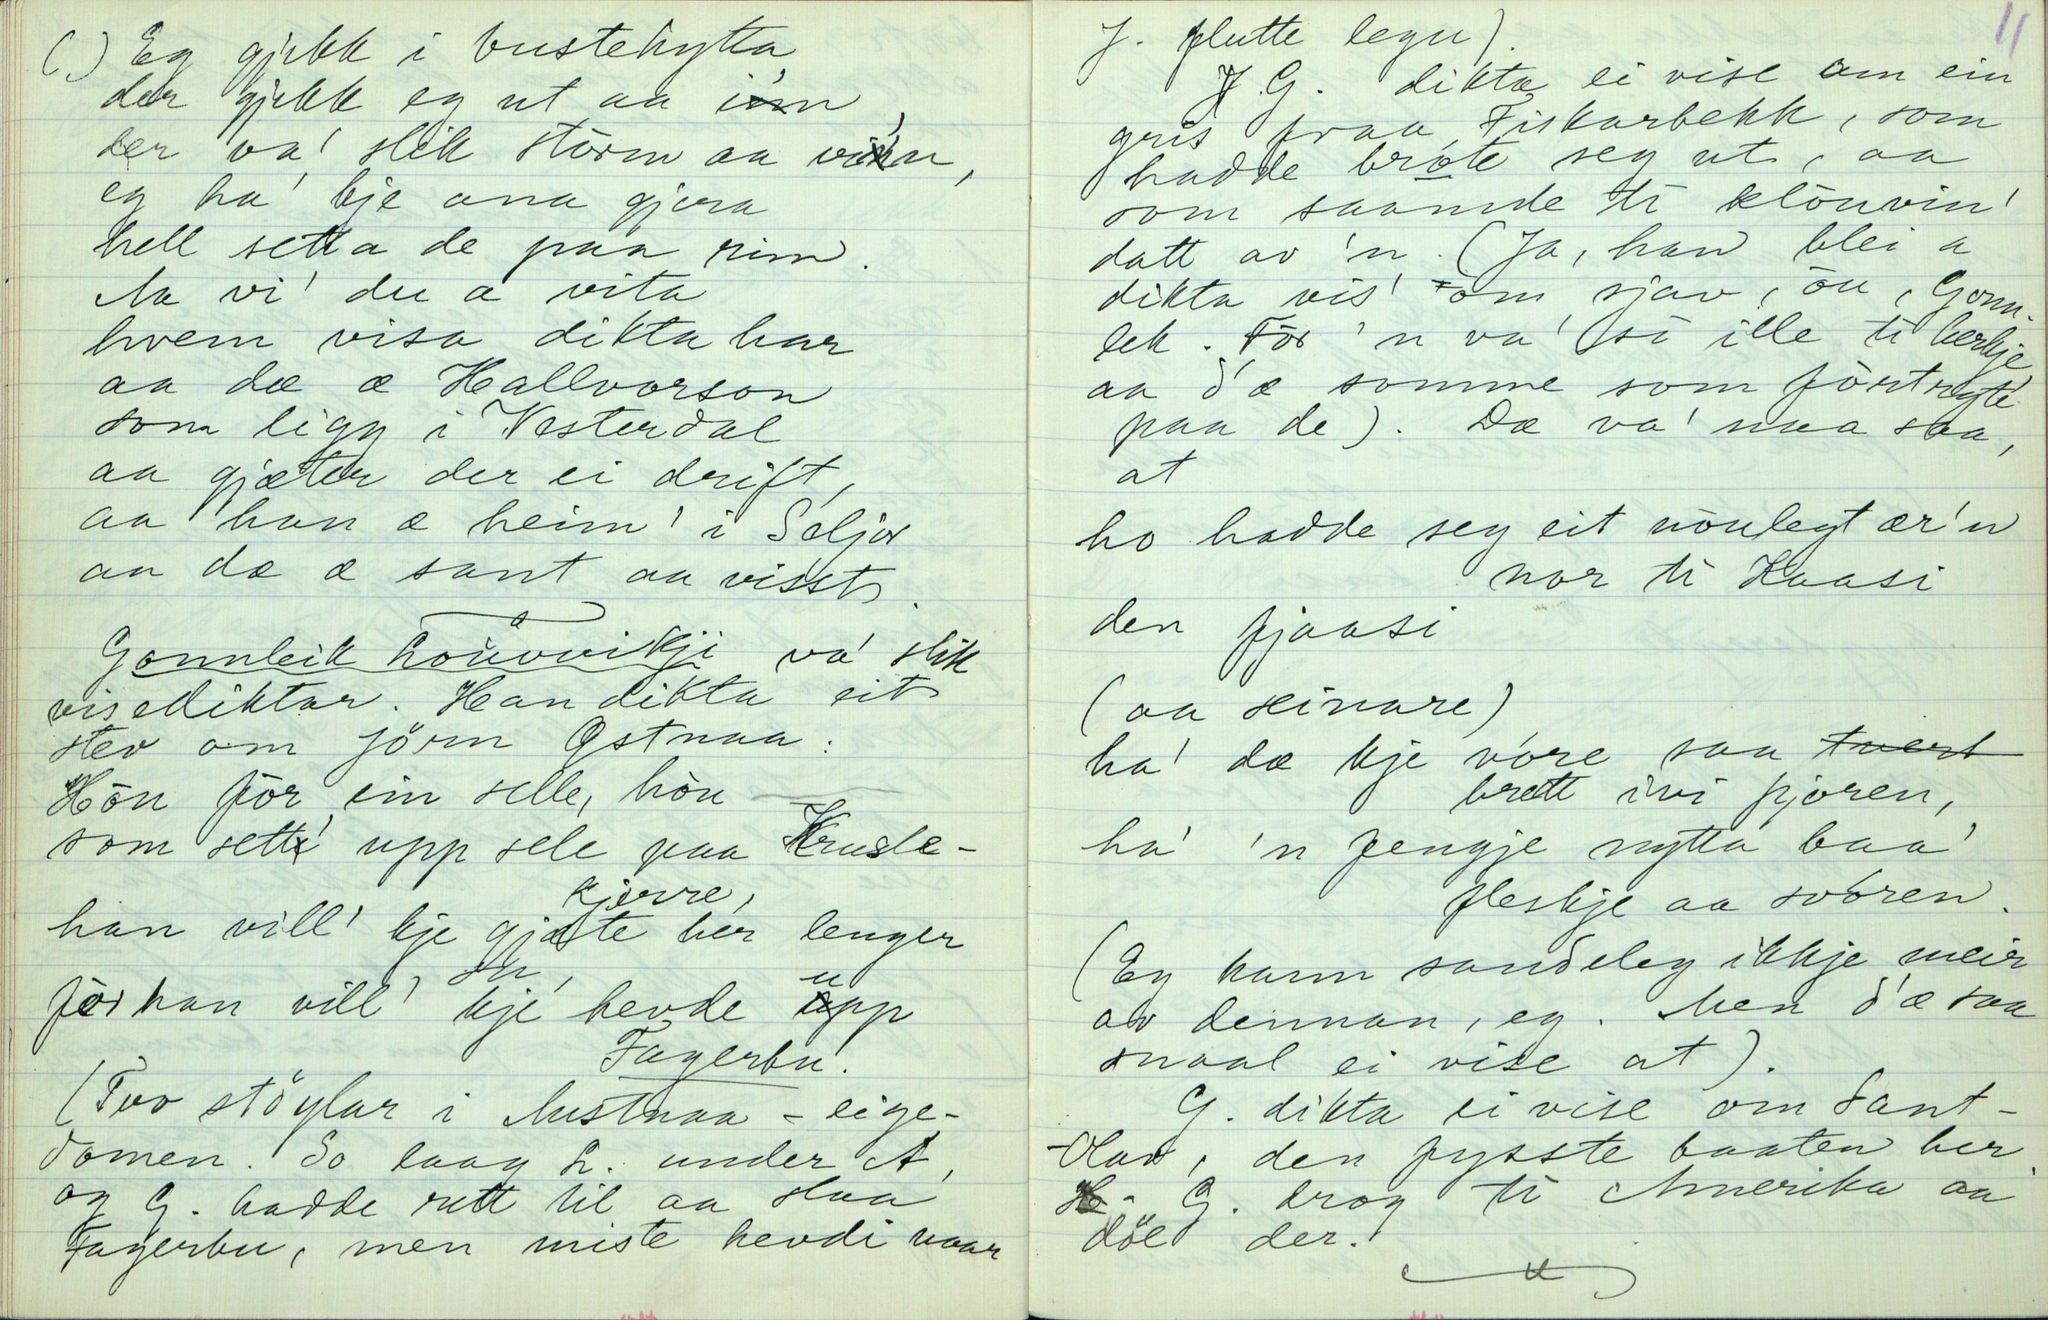 (,) Eg gjekk i bustehytta
der gjekk eg ut aa inn,
der va' slik storm aa vinn,
eg ha' kje ana gjera
hell setta de paa rim.
Aa vi' du a vita
hvem visa dikta har
aa dæ æ Hallvorson
som ligg i Vesterdal
aa gjæter der ei drift,
aa han æ heim' i Seljor
aa dæ æ sant aa visst.
Gonnleik Lòuvvikji va' slik
visediktar. Han dikta eit
stev om Jörn Ostnaa:
Hòn fòr ein selle, hòn
som sett' upp sele paa Krusle-
kjerre,
han vill' kje gjæte her lenger
fòr han vill' kje hevde upp
Fagerbu.
(Tvo stöylar i Austnaa-eige-
domen. So laag L. under A,
og G. hadde rett til aa slaa
Fagerbu, men miste hevdi naar
11
J. flutte legu).
G. dikta ei vise om ein
gris fraa Fiskarbekk, som
hadde brote seg ut, aa
som saamde ti klòuvin'
datt av 'n. (Ja, han blei a
dikta vis' om sjav, òu, Gonn-
lek. Fòr 'n va' sì ille ti berkje
aa d'æ somme som fòrtryte
paa de). Dæ va' noa saa,
at
ho hadde seg eit nòulegt ær'n
nor ti Kaasi
den fjaasi
(aa seinare)
ha' dæ kje vore saa tvert
brett ivi fjoren,
ha' 'n fengje nytta baa'
fleskje aa svoren.
(Eg kann sandeleg ikkje meir
av dennan, eg. Men d'æ saa
snaal ei vise at).
G. dikta ei vise om Sant-
-Olav, den fysste baaten her
G. drog ti Amerika aa
döe der.